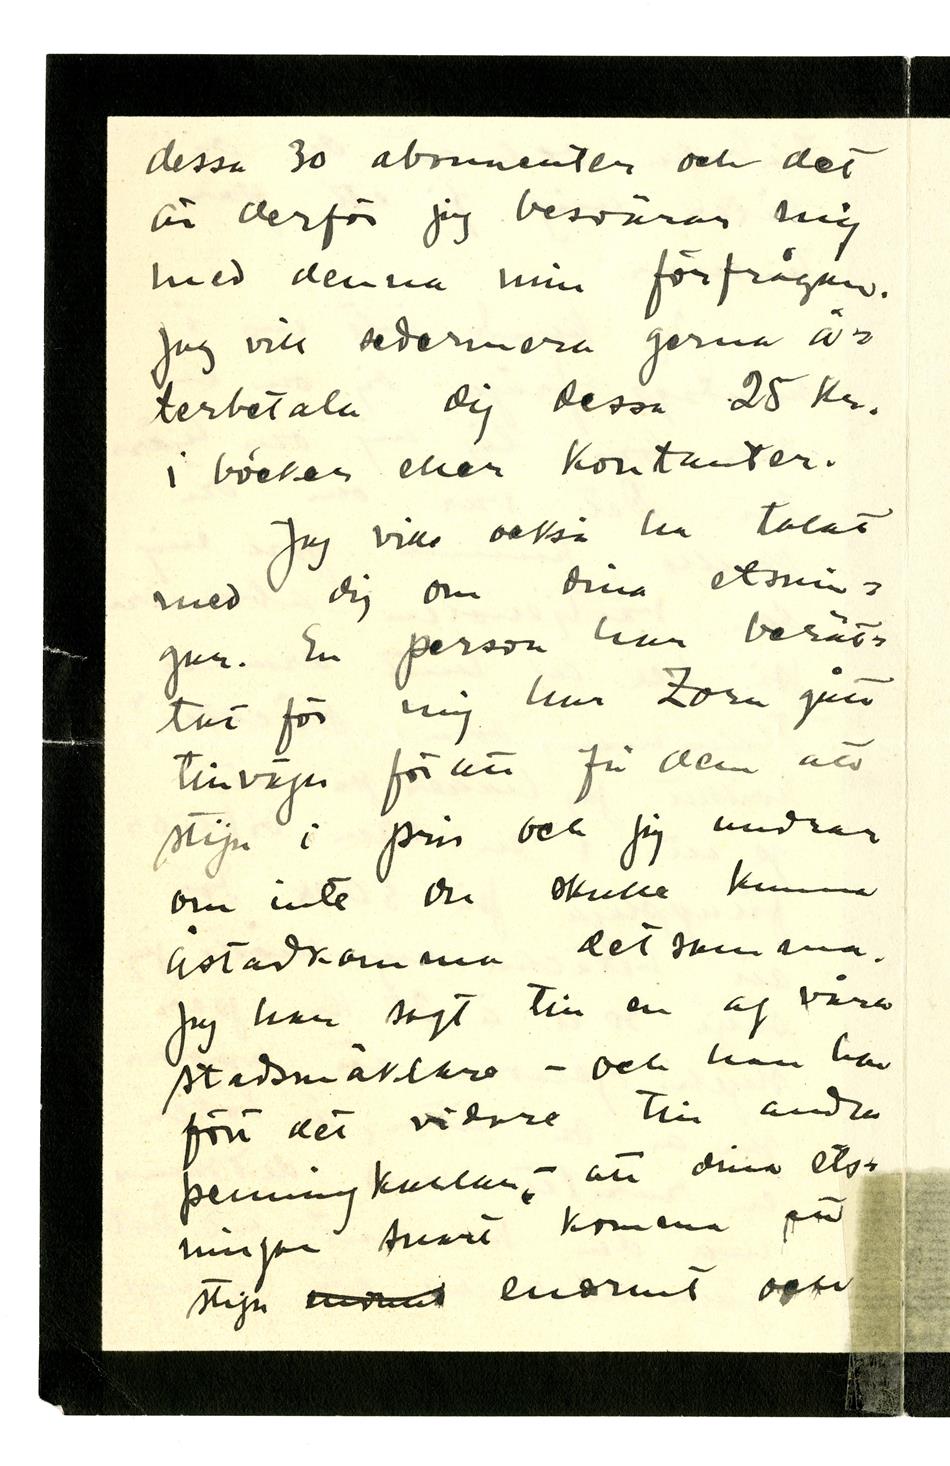 dessa 30 abonnenter och det
är derför jag besvärar mig
med denna min förfrågan.
Jag vill sedermera gerna å=
terbetala dig dessa 25 Kr.
i böcker eller kontanter.
Jag ville också ha talat
med dig om dina etsnin=
gar. En person har berät=
tat för mig hur Zorn gått
tillväga för att få dem att
stiga i pris och jag undrar
om inte du skulle kunna
åstadkomma detsamma.
Jag har sagt till en af våra
stadsmäklare – och han har
fört det vidare till andra
penningkarlar, att dina ets=
ningar snart komma att
stiga enormt och